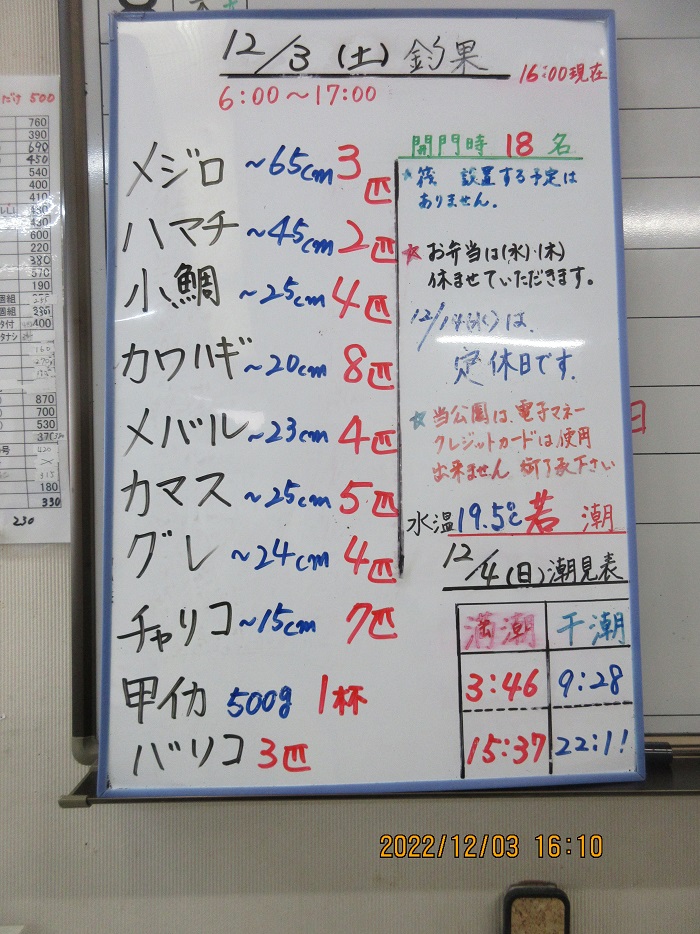 12/3(土)釣果
16:00現在
6:00〜17:00
メジロ ~65cm 3匹
ハマチ ~45cm 2匹
小鯛 ~25cm 4匹
カワハギ ~20cm 8匹
メバル ~23cm 4匹
カマス ~25cm 5匹
グレ ~24cm 4匹
チャリコ ~15cm 7匹
甲イカ 500g 1杯
バリコ 3匹
開門時 18名
☆筏 設置する予定は
ありません。
☆お弁当は(水)・(木)
休ませていただきます。
12/14(水)は、
定休日です。
☆当公園は、電子マネー
クレジットカードは使用
出来ません 御了承下さい
水温19.5℃ 若潮
12/4(日)潮見表
満潮 干潮
3:46 9:28
15:37 22:11
2022/12/03 16:10
だけ 500
760
390
690
450
540
400
410
430
600
220
380
570
190
400
870
700
530
180
330
230
日